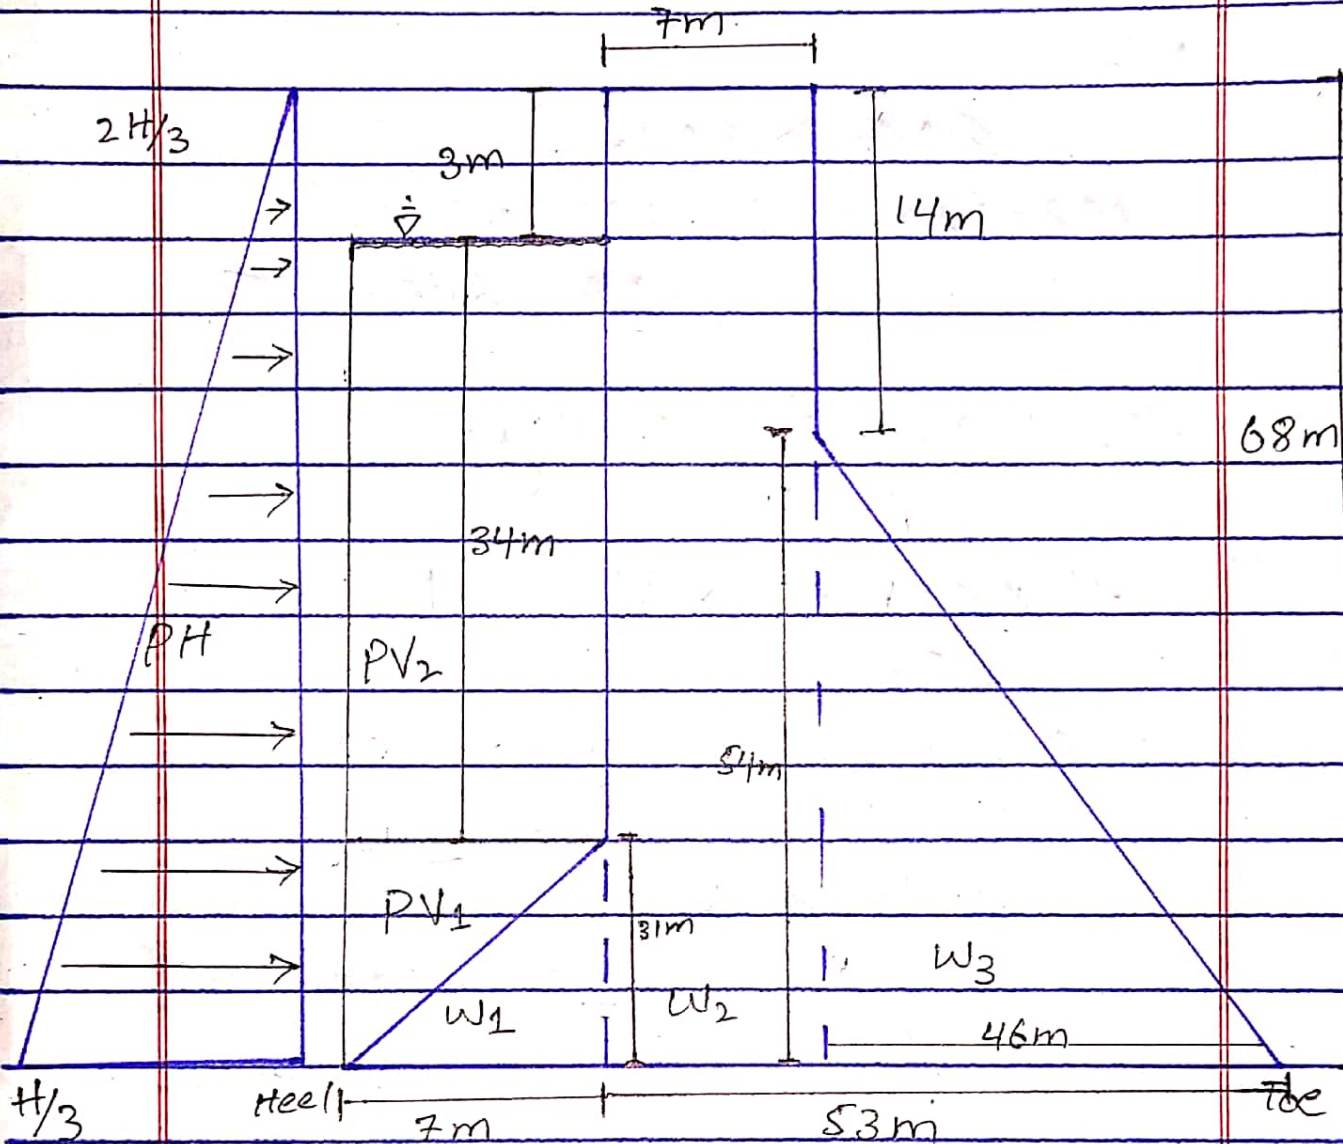 7m
2H/3
3m
14m
68m
34m
PH
PV2
54m
PV1
31m
W3
W1
W2
46m
H/3
Heel
7m
53m
Toe